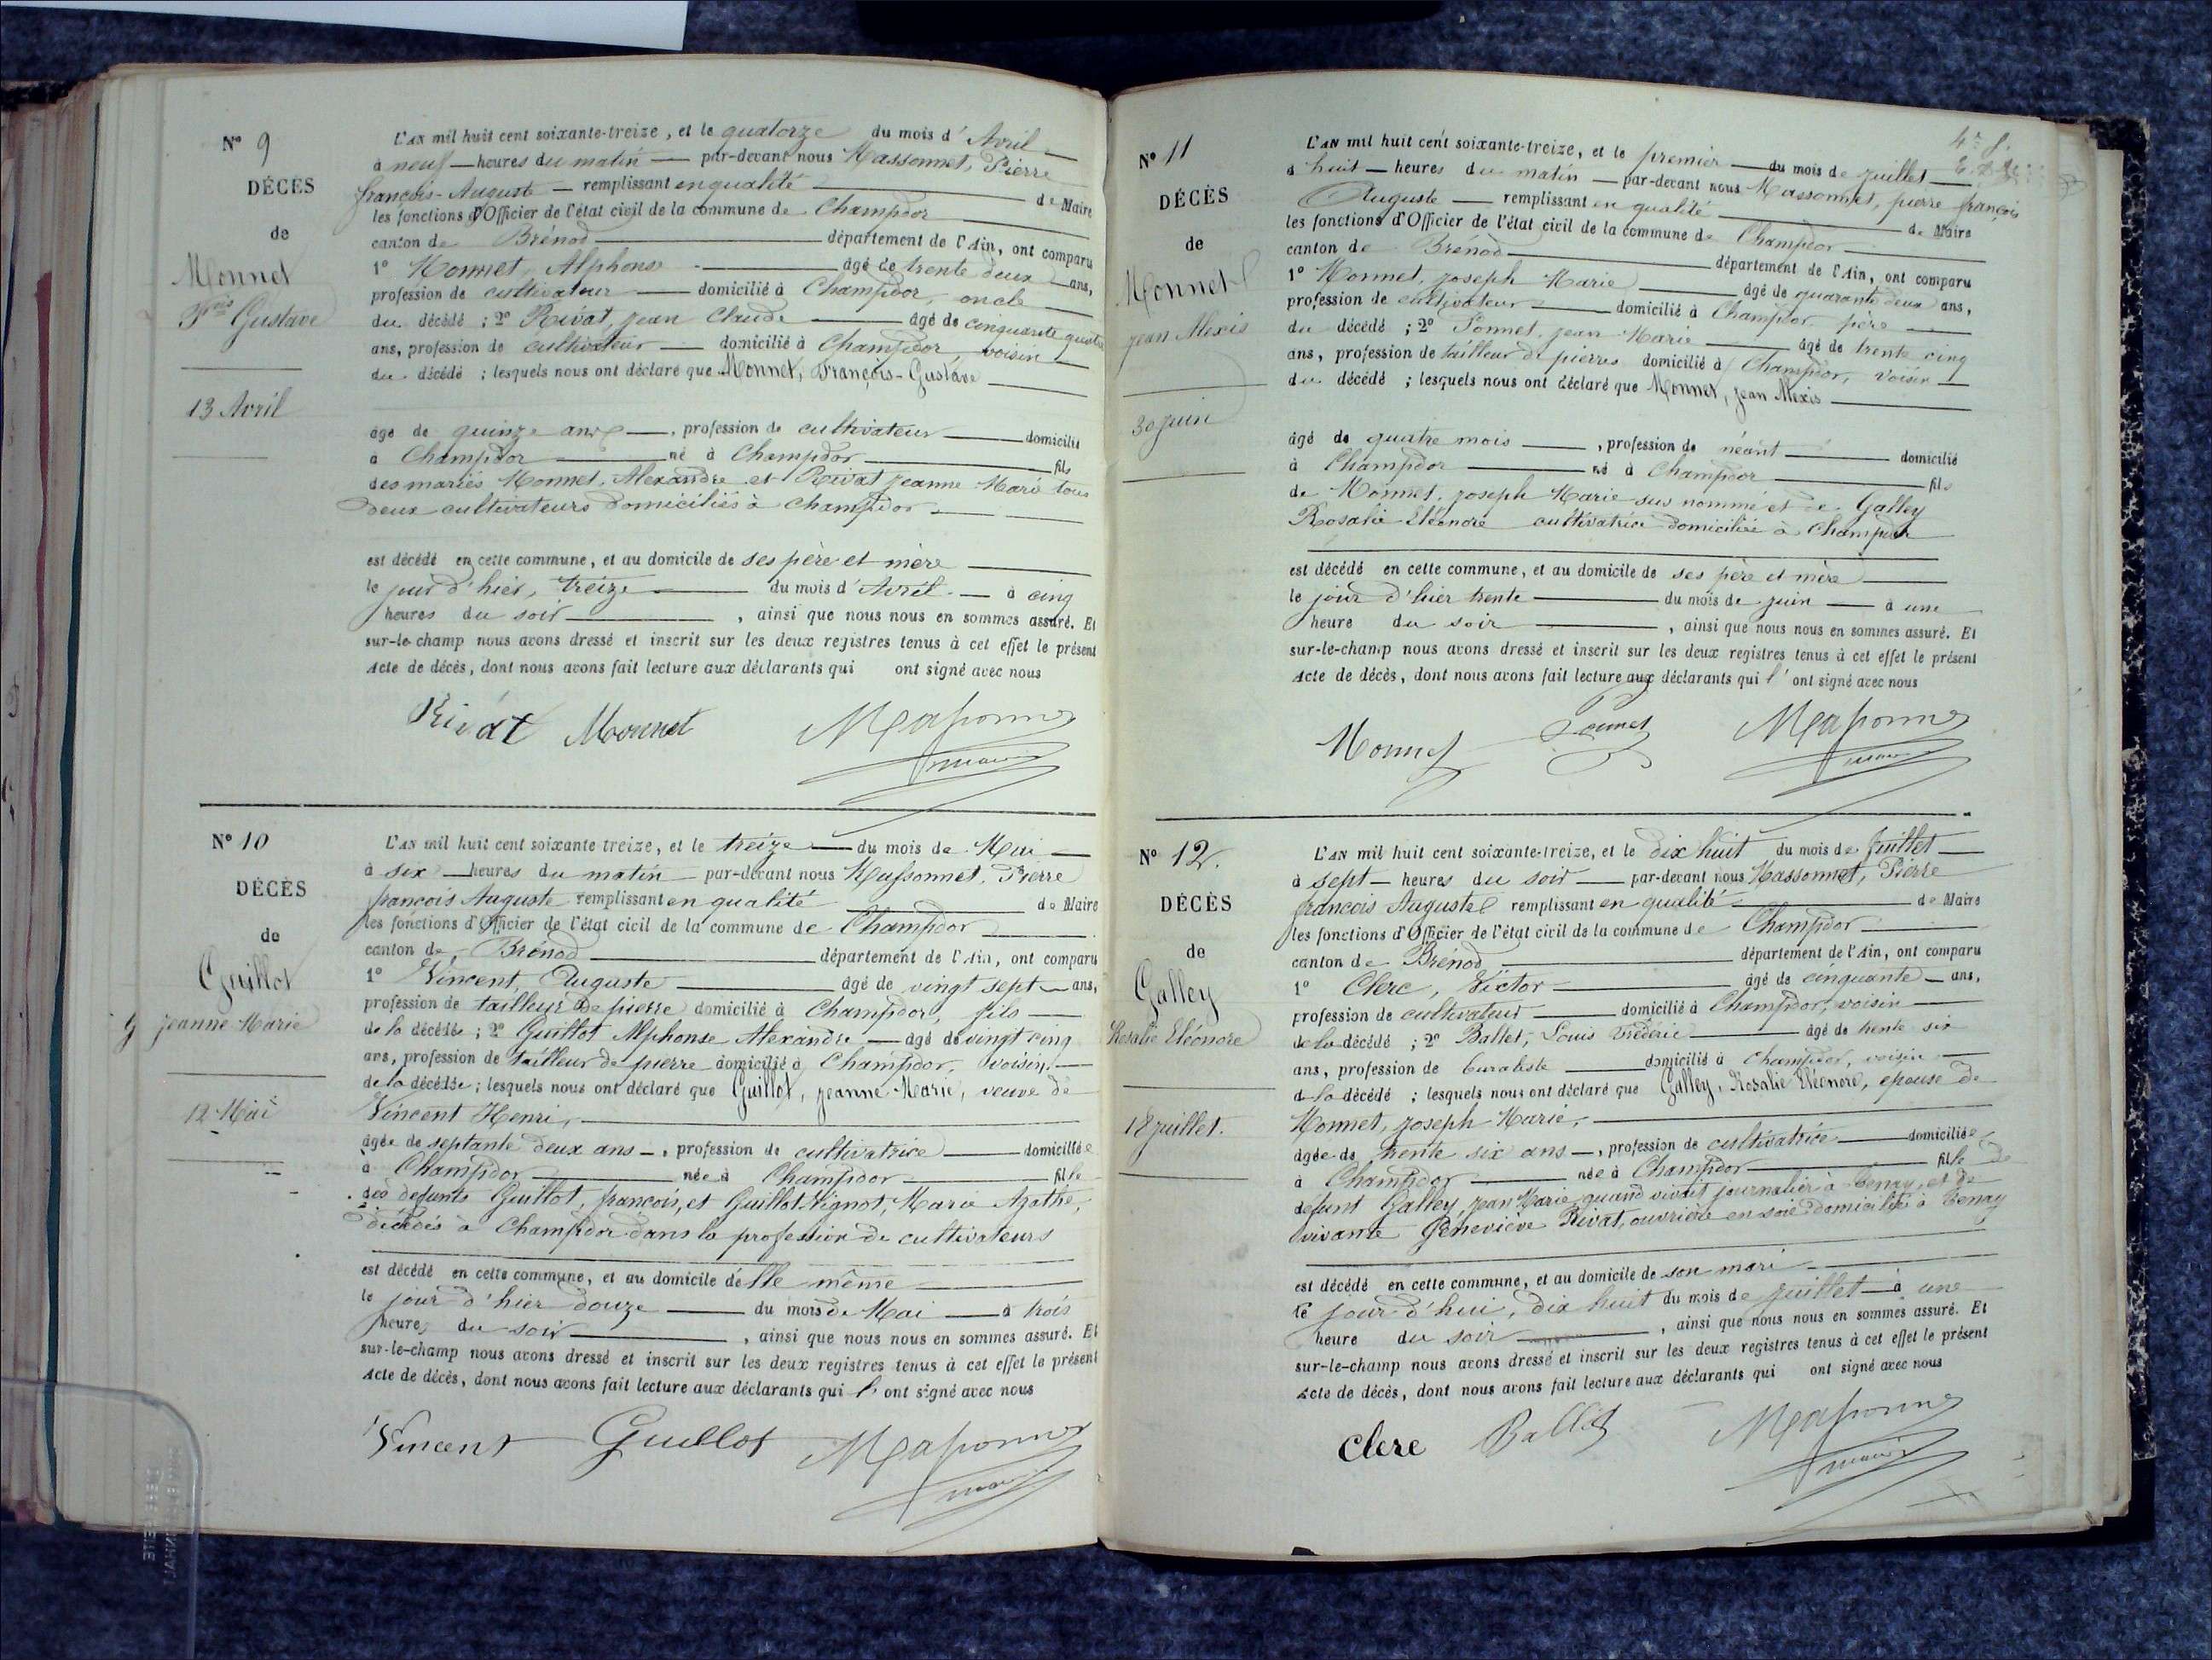 N° 9
DÉCÈS
de
Monnet
Fçois Gustave
13 Avril
L'AN mil huit cent soixante-treize, et le quatorze du mois d'Avril
à neuf heures du matin par-devant nous Massonnet, Pierre
françois-Auguste remplissant en qualité de Maire
les fonctions d'Officier de l'état civil de la commune de Champdor
canton de Brénod département de l'Ain, ont comparu
1° Monnet, Alphonse âgé de trente deux ans,
profession de cultivateur domicilié à Champdor, oncle
du décédé ; 2° Rivat, jean Claude âgé de cinquante quatre
ans, profession de cultivateur domicilié à Champdor, voisin
du décédé ; lesquels nous ont déclaré que Monnet, François-Gustave
âgé de quinze ans, profession de cultivateur domicilié
à Champdor né à Champdor fils
des mariés Monnet, Alexandre et Rivat jeanne Marie tous
deux cultivateurs domiciliés à Champdor
est décédé en cette commune, et au domicile de ses père et mère
le jour d'hier, treize du mois d'Avril à cinq
heures du soir, ainsi que nous nous en sommes assuré. Et
sur-le-champ nous avons dressé et inscrit sur les deux registres tenus à cet effet le présent
Acte de décès, dont nous avons fait lecture aux déclarants qui ont signé avec nous
Rivat Monnet Massonnet
maire
N° 10
DÉCÈS
de
Guillot
jeanne Marie
12 Mai
L'AN mil huit cent soixante treize, et le treize du mois de Mai
à six heures du matin par-devant nous Massonnet, Pierre
françois Auguste remplissant en qualité de Maire
les fonctions d'Officier de l'état civil de la commune de Champdor
canton de Brénod département de l'Ain, ont comparu
1° Vincent, Auguste âgé de vingt sept ans,
profession de tailleur de pierre domicilié à Champdor, fils
de la décédée ; 2° Guillot Alphonse Alexandre âgé de vingt cinq
ans, profession de tailleur de pierre domicilié à Champdor, voisin
de la décédée ; lesquels nous ont déclaré que Guillot, jeanne-Marie, veuve de
Vincent Henri,
âgée de septante deux ans, profession de cultivatrice domiciliée
à Champdor née à Champdor fille
des defunts Guillot, françois, et Guillot Vignot, Marie Agathe,
décédés à Champdor dans la profession de cultivateurs
est décédé en cette commune, et au domicile d'elle même
le jour d'hier douze du mois de Mai à trois
heures du soir, ainsi que nous nous en sommes assuré. Et
sur-le-champ nous avons dressé et inscrit sur les deux registres tenus à cet effet le présent
Acte de décès, dont nous avons fait lecture aux déclarants qui l' ont signé avec nous
Vincent Guillot Massonnet
maire
N° 11
DÉCÈS
de
Monnet
jean Alexis
30 juin
L'AN mil huit cent soixante-treize, et le premier du mois de juillet
à huit heures du matin par-devant nous Massonnet, pierre françois
Auguste remplissant en qualité de Maire
les fonctions d'Officier de l'état civil de la commune de Champdor
canton de Brénod département de l'Ain, ont comparu
1° Monnet, joseph Marie âgé de quarante deux ans,
profession de cultivateur domicilié à Champdor, père
du décédé ; 2° Ponnet, jean Marie âgé de trente cinq
ans, profession de tailleur de pierres domicilié à Champdor, voisin
du décédé ; lesquels nous ont déclaré que Monnet, jean Alexis
âgé de quatre mois, profession de néant domicilié
à Champdor né à Champdor fils
de Monnet, joseph Marie sus nommé et de Galley
Rosalie Eléonore cultivatrice domiciliée à Champdor
est décédé en cette commune, et au domicile de ses père et mère
le jour d'hier trente du mois de juin à une
heure du soir, ainsi que nous nous en sommes assuré. Et
sur-le-champ nous avons dressé et inscrit sur les deux registres tenus à cet effet le présent
Acte de décès, dont nous avons fait lecture aux déclarants qui l' ont signé avec nous
Monnet Ponnet Massonnet
maire
N° 12.
DÉCÈS
de
Galley
Rosalie Eléonore
18 juillet.
L'AN mil huit cent soixante-treize, et le dix huit du mois de juillet
à sept heures du soir par-devant nous Massonnet, Pierre
françois Auguste remplissant en qualité de Maire
les fonctions d'Officier de l'état civil de la commune de Champdor
canton de Brénod département de l'Ain, ont comparu
1° Clerc, Victor âgé de cinquante ans,
profession de cultivateur domicilié à Champdor, voisin
de la décédé ; 2° Ballet, Louis Frédéric âgé de trente six
ans, profession de buraliste domicilié à Champdor, voisin
de la décédé ; lesquels nous ont déclaré que Galley, Rosalie Eléonore, épouse de
Monnet, joseph Marie,
âgée de trente six ans, profession de cultivatrice domiciliée
à Champdor née à Champdor fille de
defunt Galley, jean Marie, quand vivait journalier à Tenay, et de
vivante Geneviève Rivat, ouvrière en soie domiciliée à Tenay
est décédé en cette commune, et au domicile de son mari
le jour d'hui, dix huit du mois de juillet à une
heure du soir, ainsi que nous nous en sommes assuré. Et
sur-le-champ nous avons dressé et inscrit sur les deux registres tenus à cet effet le présent
Acte de décès, dont nous avons fait lecture aux déclarants qui ont signé avec nous
Clerc Ballet Massonnet
maire